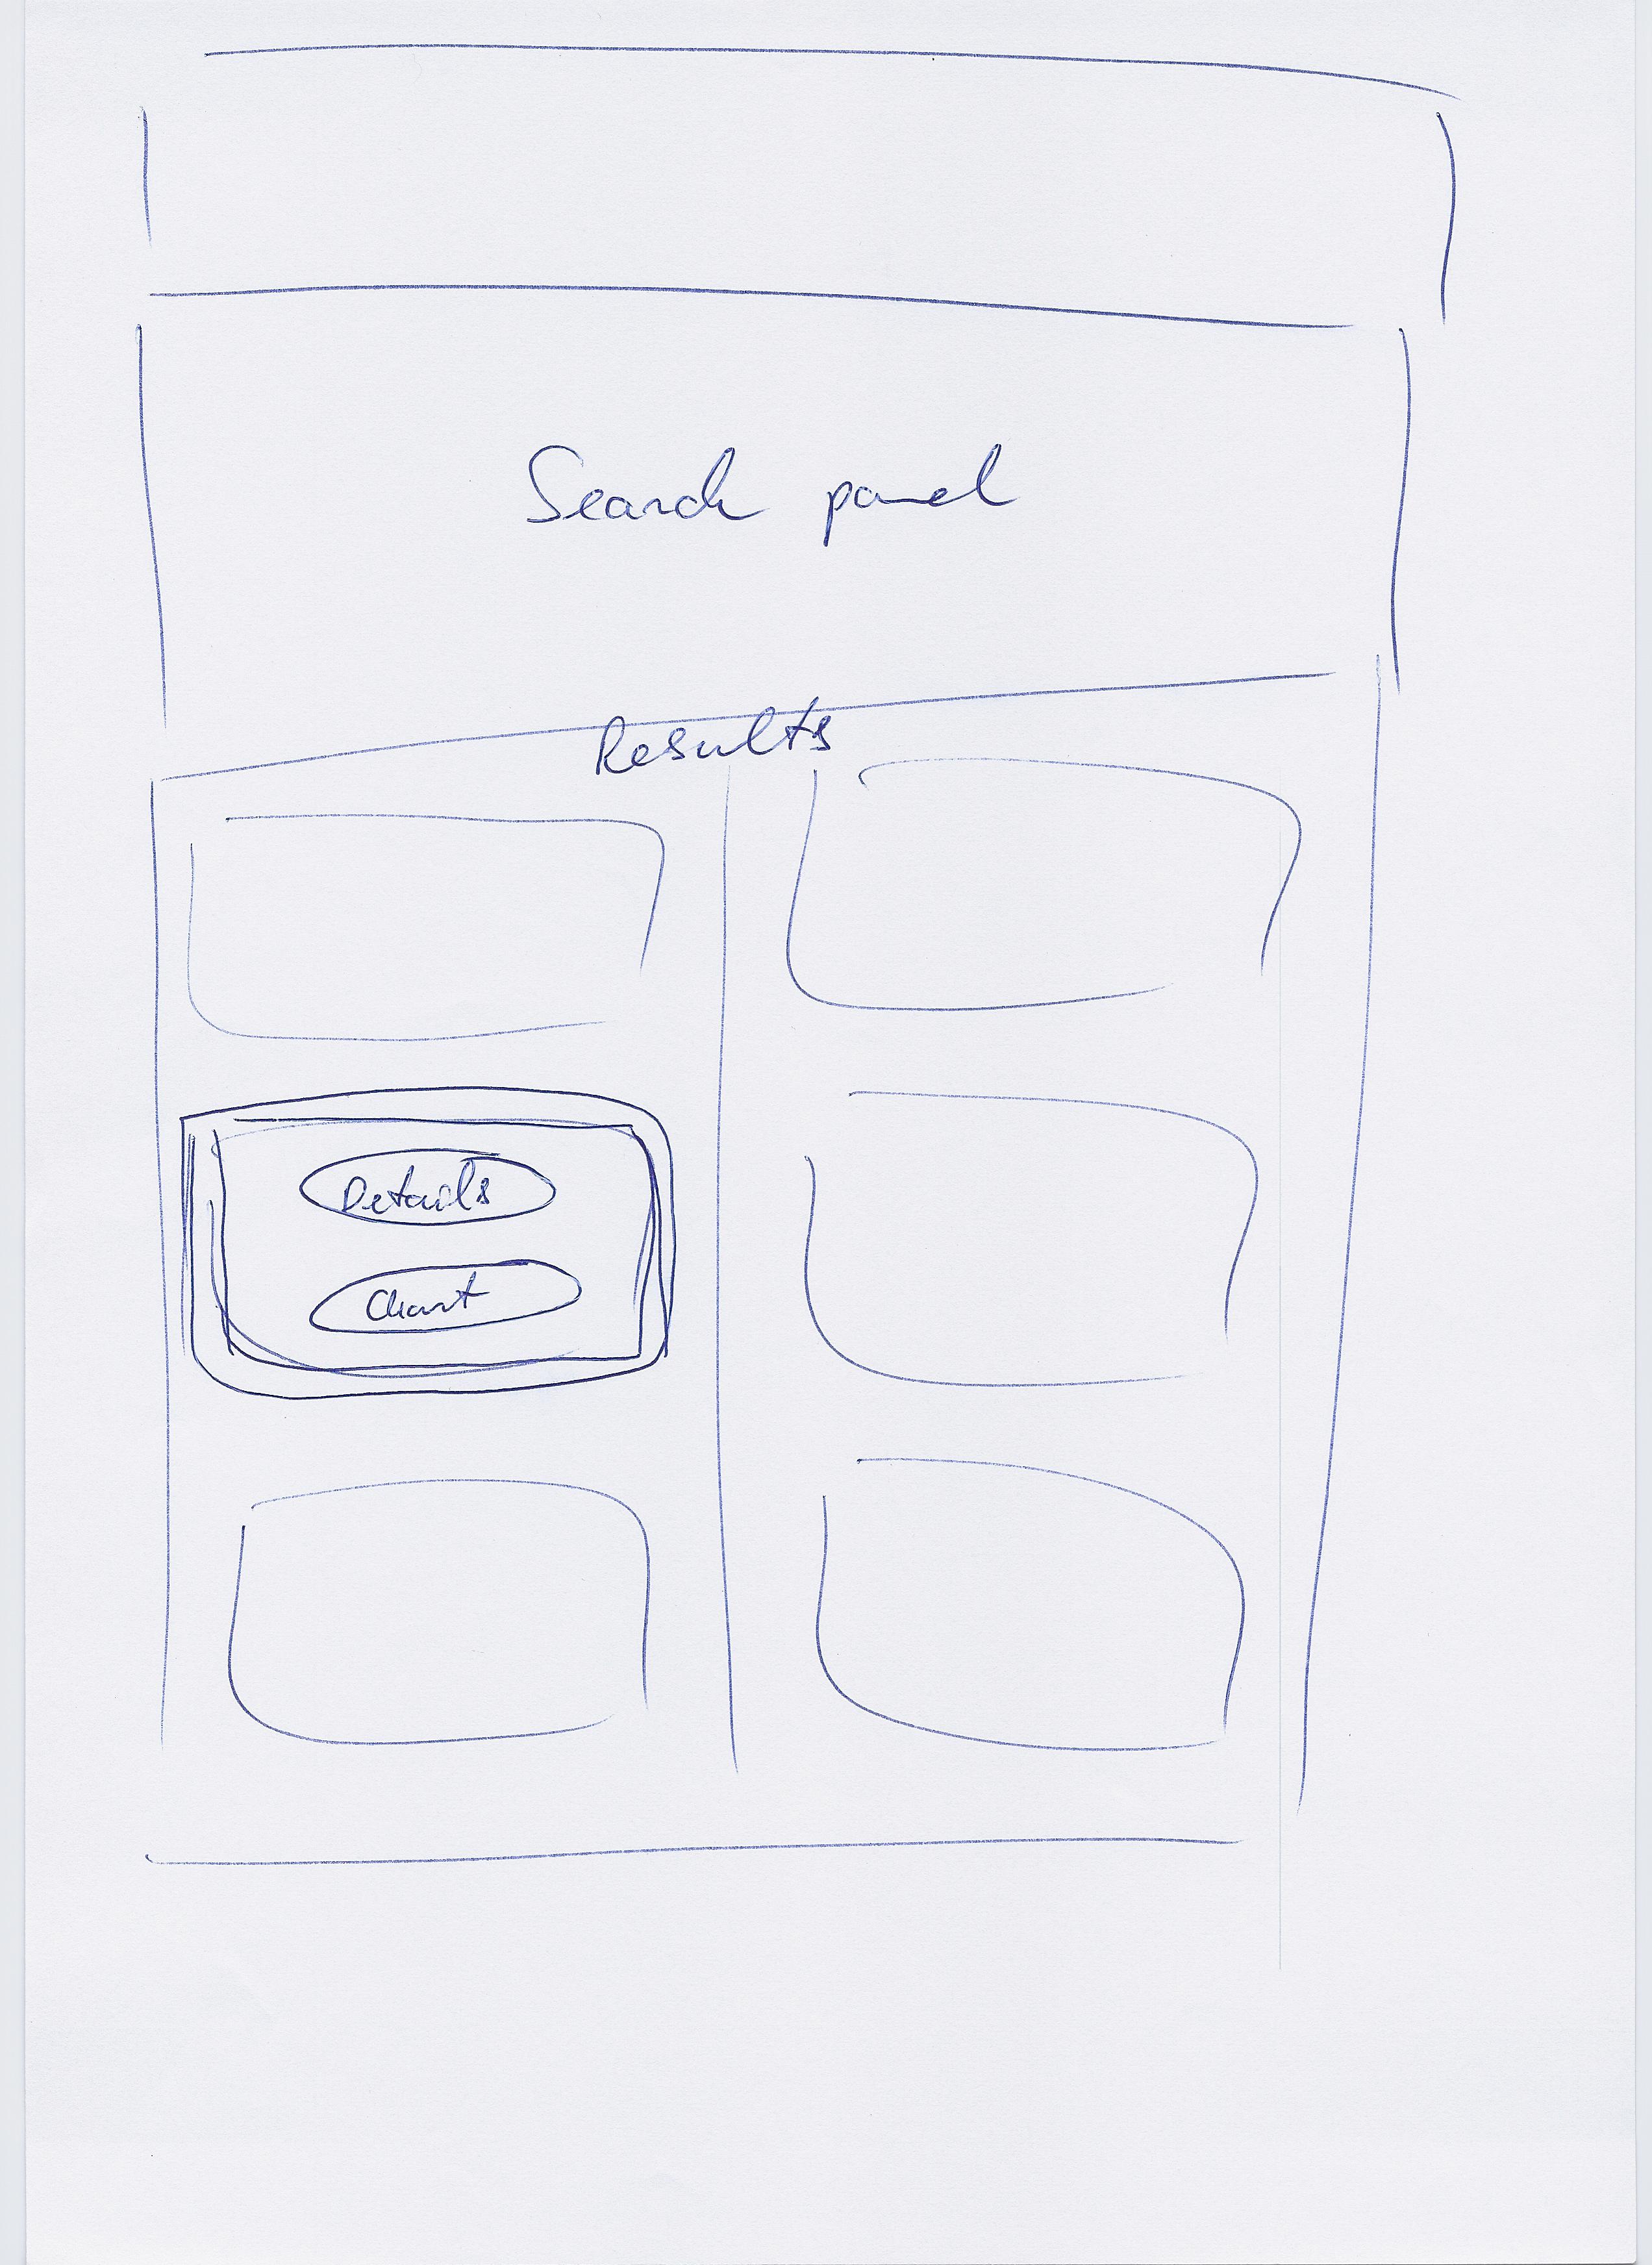 Search panel
Results
Details
Chart